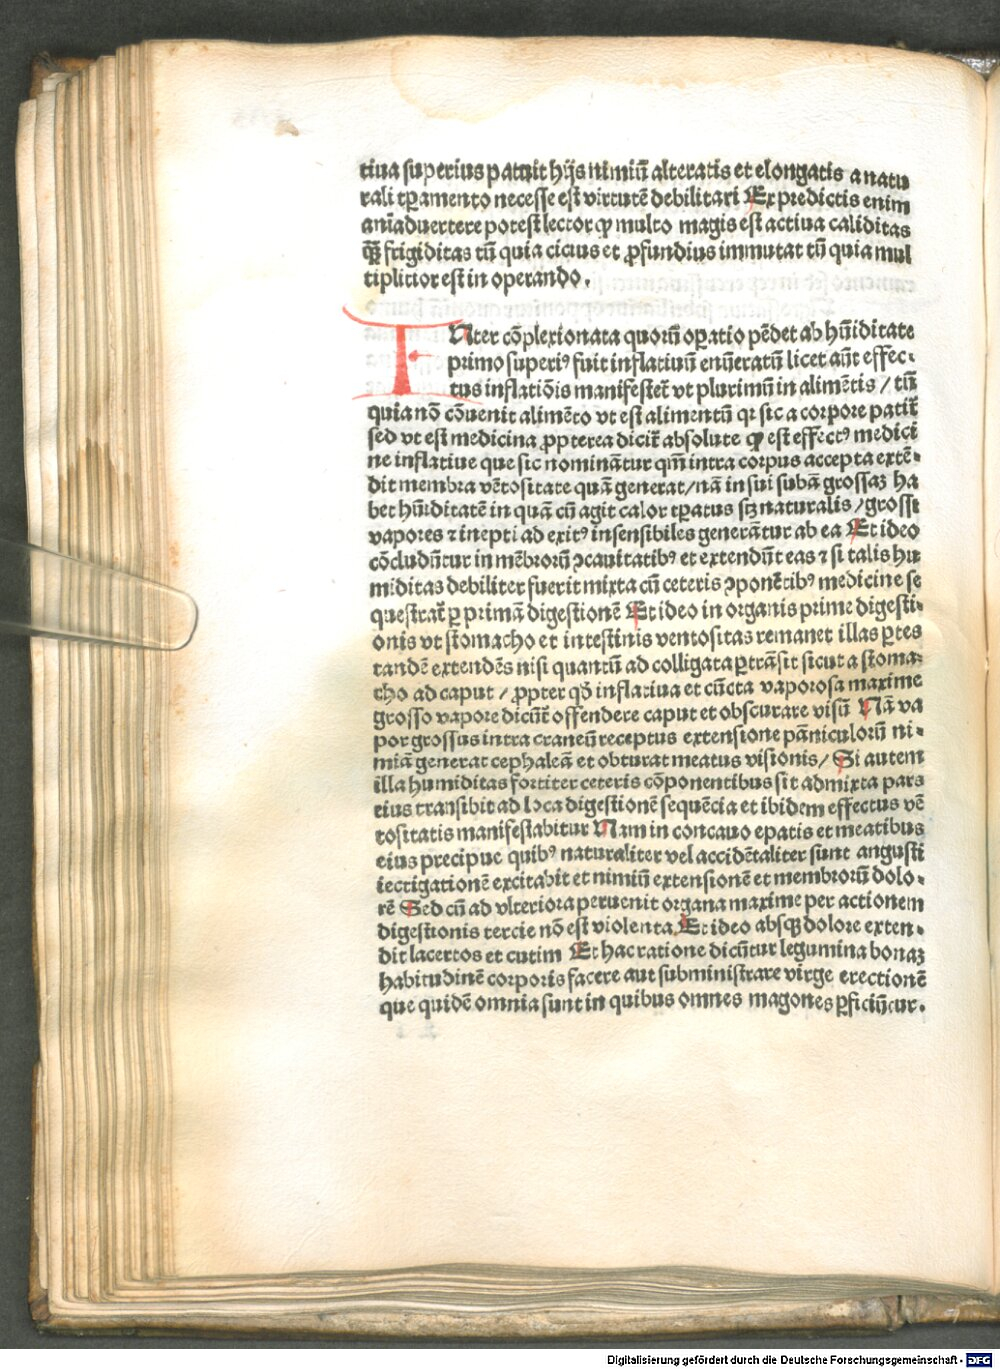 tiua superius patuit hijs nimiū alteratis et elongatis a natu
rali tꝑamento necesse est virtutē debilitari Ex predictis enim
aniaduertere potest lector ꝙ multo magis est actiua caliditas
ꝙ̄ frigiditas tū quia cicius et ꝓfundius immutat tū quia mul
tiplicior est in operando.
INter cōplexionata quorū oꝑatio pēdet ab hūiditate
primo superiꝰ fuit inflatiuū enūeratū licet aūt effec-
tus inflatiōis manifestet̄ vt plurimū in alimētis / tū
quia nō cōuenit alimēto vt est alimentū qr sic a corpore patit̄
sed vt est medicina ꝓpterea dicit̄ absolute ꝙ est effectꝰ medici
ne inflatiue que sic nominātur qm̄ intra corpus accepta extē-
dit membra vētositate quā generat/nā in sui subā grossaꝫ ha
bet hūiditatē in quā cū agit calor tꝑatus sꝫ naturalis/grossi
vapores ⁊ inepti ad exitꝰ insensibiles generātur ab ea Et ideo
cōcludūtur in mēbrorū ꝯcauitatibꝰ et extendūt eas ⁊ si talis hu
miditas debiliter fuerit mixta cū ceteris ꝯponētibꝰ medicine se
questrat̄ ꝑ primā digestionē Et ideo in organis prime digesti-
onis vt stomacho et intestinis ventositas remanet illas ꝑtes
tandē extendēs nisi quantū ad colligata ꝑtrāsit sicut a stoma-
cho ad caput / ꝓpter qd̄ inflatiua et cūcta vaporosa maxime
grosso vapore dicūt̄ offendere caput et obscurare visū Nā va
por grossus intra craneū receptus extensione pāniculorū ni-
miā generat cephaleā et obturat meatus visionis/ Si autem
illa humiditas fortiter ceteris cōponentibus sit admixta pars
eius transibit ad loca digestionē sequēcia et ibidem effectus vē
tositatis manifestabitur Nam in concauo epatis et meatibus
eius precipue quibꝰ naturaliter vel accidētaliter sunt angusti
iectigationē excitabit et nimiū extensionē et membrorū dolo-
rē Sed cū ad vlteriora peruenit organa maxime per actionem
digestionis tercie nō est violenta Et ideo absqꝫ dolore exten-
dit lacertos et cutim Et hac ratione dicūtur legumina bonaꝫ
habitudinē corporis facere aut subministrare virge erectionē
que quidē omnia sunt in quibus omnes magones ꝑficiūtur.
Digitalisierung gefördert durch die Deutsche Forschungsgemeinschaft - DFG